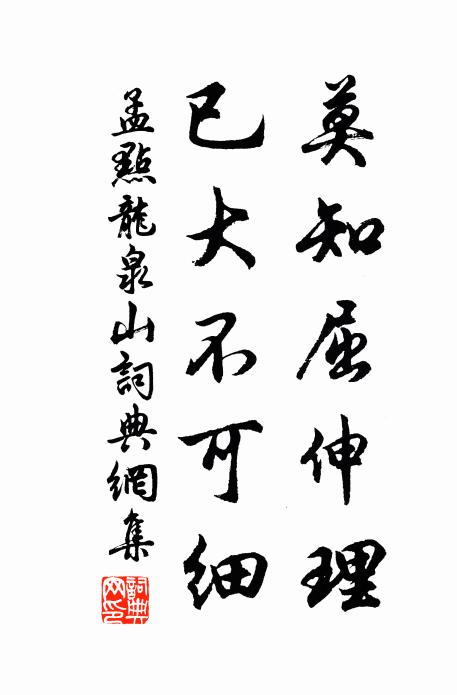 莫知屈伸理
已大不可細
孟點龍泉山詞典網集
詞典網印